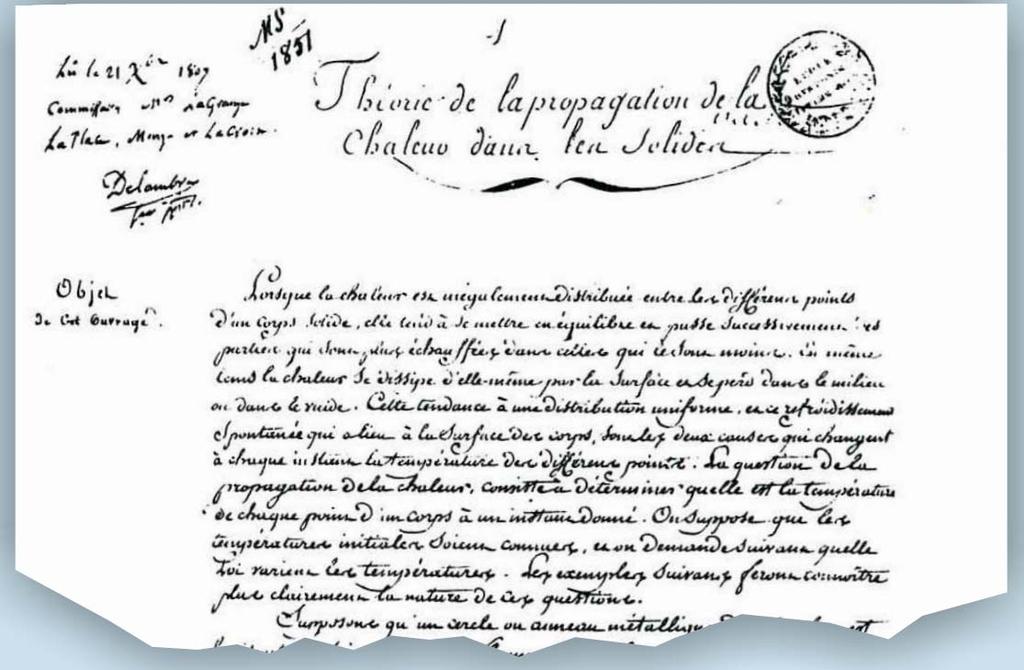 MS
1851
1
Lu le 21 Xbre 1807
Commissaires Mrs LaGrange
LaPlace, Monge et LaCroix.
Delambre
Théorie de la propagation de la
Chaleur dans les Solides
Objet
de Cet Ouvrage.
Lorsque la chaleur est inégalement distribuée entre les différens points
d'un corps solide, elle tend à se mettre en équilibre et passe successivement des
parties qui sont plus échauffées dans celles qui le sont moins. En même
tems la chaleur se dissipe d'elle-même par la surface et se perd dans le milieu
ou dans le vuide. Cette tendance à une distribution uniforme, et ce refroidissement
spontanée qui a lieu à la surface des corps, sont les deux causes qui changent
à chaque instant la température des différens points. La question de la
propagation de la chaleur, consiste à déterminer quelle est la température
de chaque point d'un corps à un instant donné. On suppose que les
températures initiales soient connues, et on demande suivant quelle
loi varient les températures. Les exemples suivans feront connoître
plus clairement la nature de ces questions.
Supposons qu'un cercle ou anneau métallique est